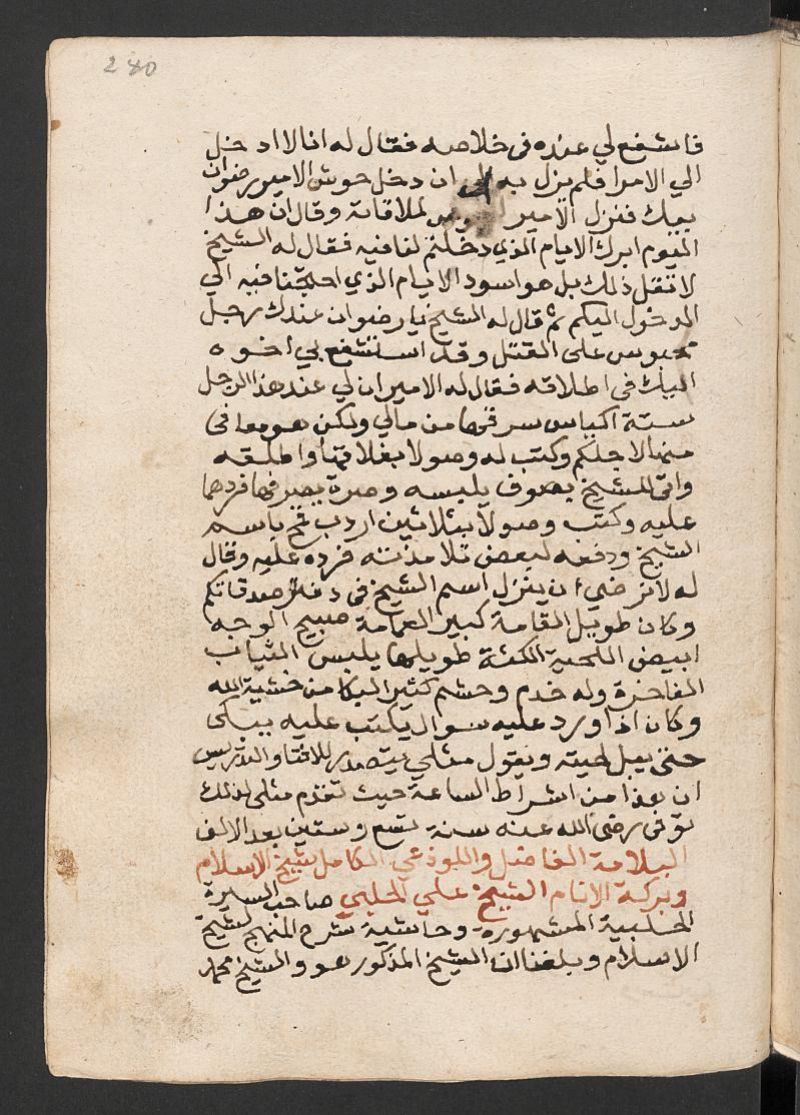 280
فاشفع لي عنده فى خلاصه فقال له انا لا ادخل
الي الامرا فلم يزل به الى ان دخل حوش الامير رضوان
بيك فنزل الامير لملاقاته وقال ان هذا
اليوم ابرك الايام الذي دخلتم لنا فيه فقال له الشيخ
لا تقل ذلك بل هو اسود الايام الذي احتجنا فيه الي
الدخول اليكم ثم قال له الشيخ يا رضوان عندك رجل
محبوس على القتل وقد استشفع بي اخوه
اليك فى اطلاقه فقال له الامير ان لي عند هذا الرجل
ستة اكياس سرقها من مالي ولكن هو معافى
منها لاجلكم وكتب له وصولا بغلاقها واطلقه
واتى للشيخ بصوف يلبسه وصرة يصرفها فردهما
عليه وكتب وصولا بثلاثين اردب قمح باسم
الشيخ ودفعه لبعض تلامذته فرده عليه وقال
له لا نرضي ان ينزل اسم الشيخ فى دفتر صدقاتكم
وكان طويل القامة كبير العمامة صبيح الوجه
ابيض اللحية الكثة طويلها يلبس الثياب
الفاخرة وله خدم وحشم كثير البكا من خشية الله
وكان اذا ورد عليه سوال يكتب عليه يبكى
حتى يبل لحيته ويقول مثلي يتصدر للافتا والتدريس
ان هذا من اشراط الساعة حيث تقدم مثلى لذلك
توفى رضى الله عنه سنة تسع وستين بعد الالف
الفاضل واللوذعي الكامل شيخ الاسلام
وبركة الانام الشيخ علي الحلبي صاحب السيرة
الحلبية المشهورة وحاشية شرح المنهج لشيخ
الاسلام وبلغنا ان الشيخ المذكور هو والشيخ محمد